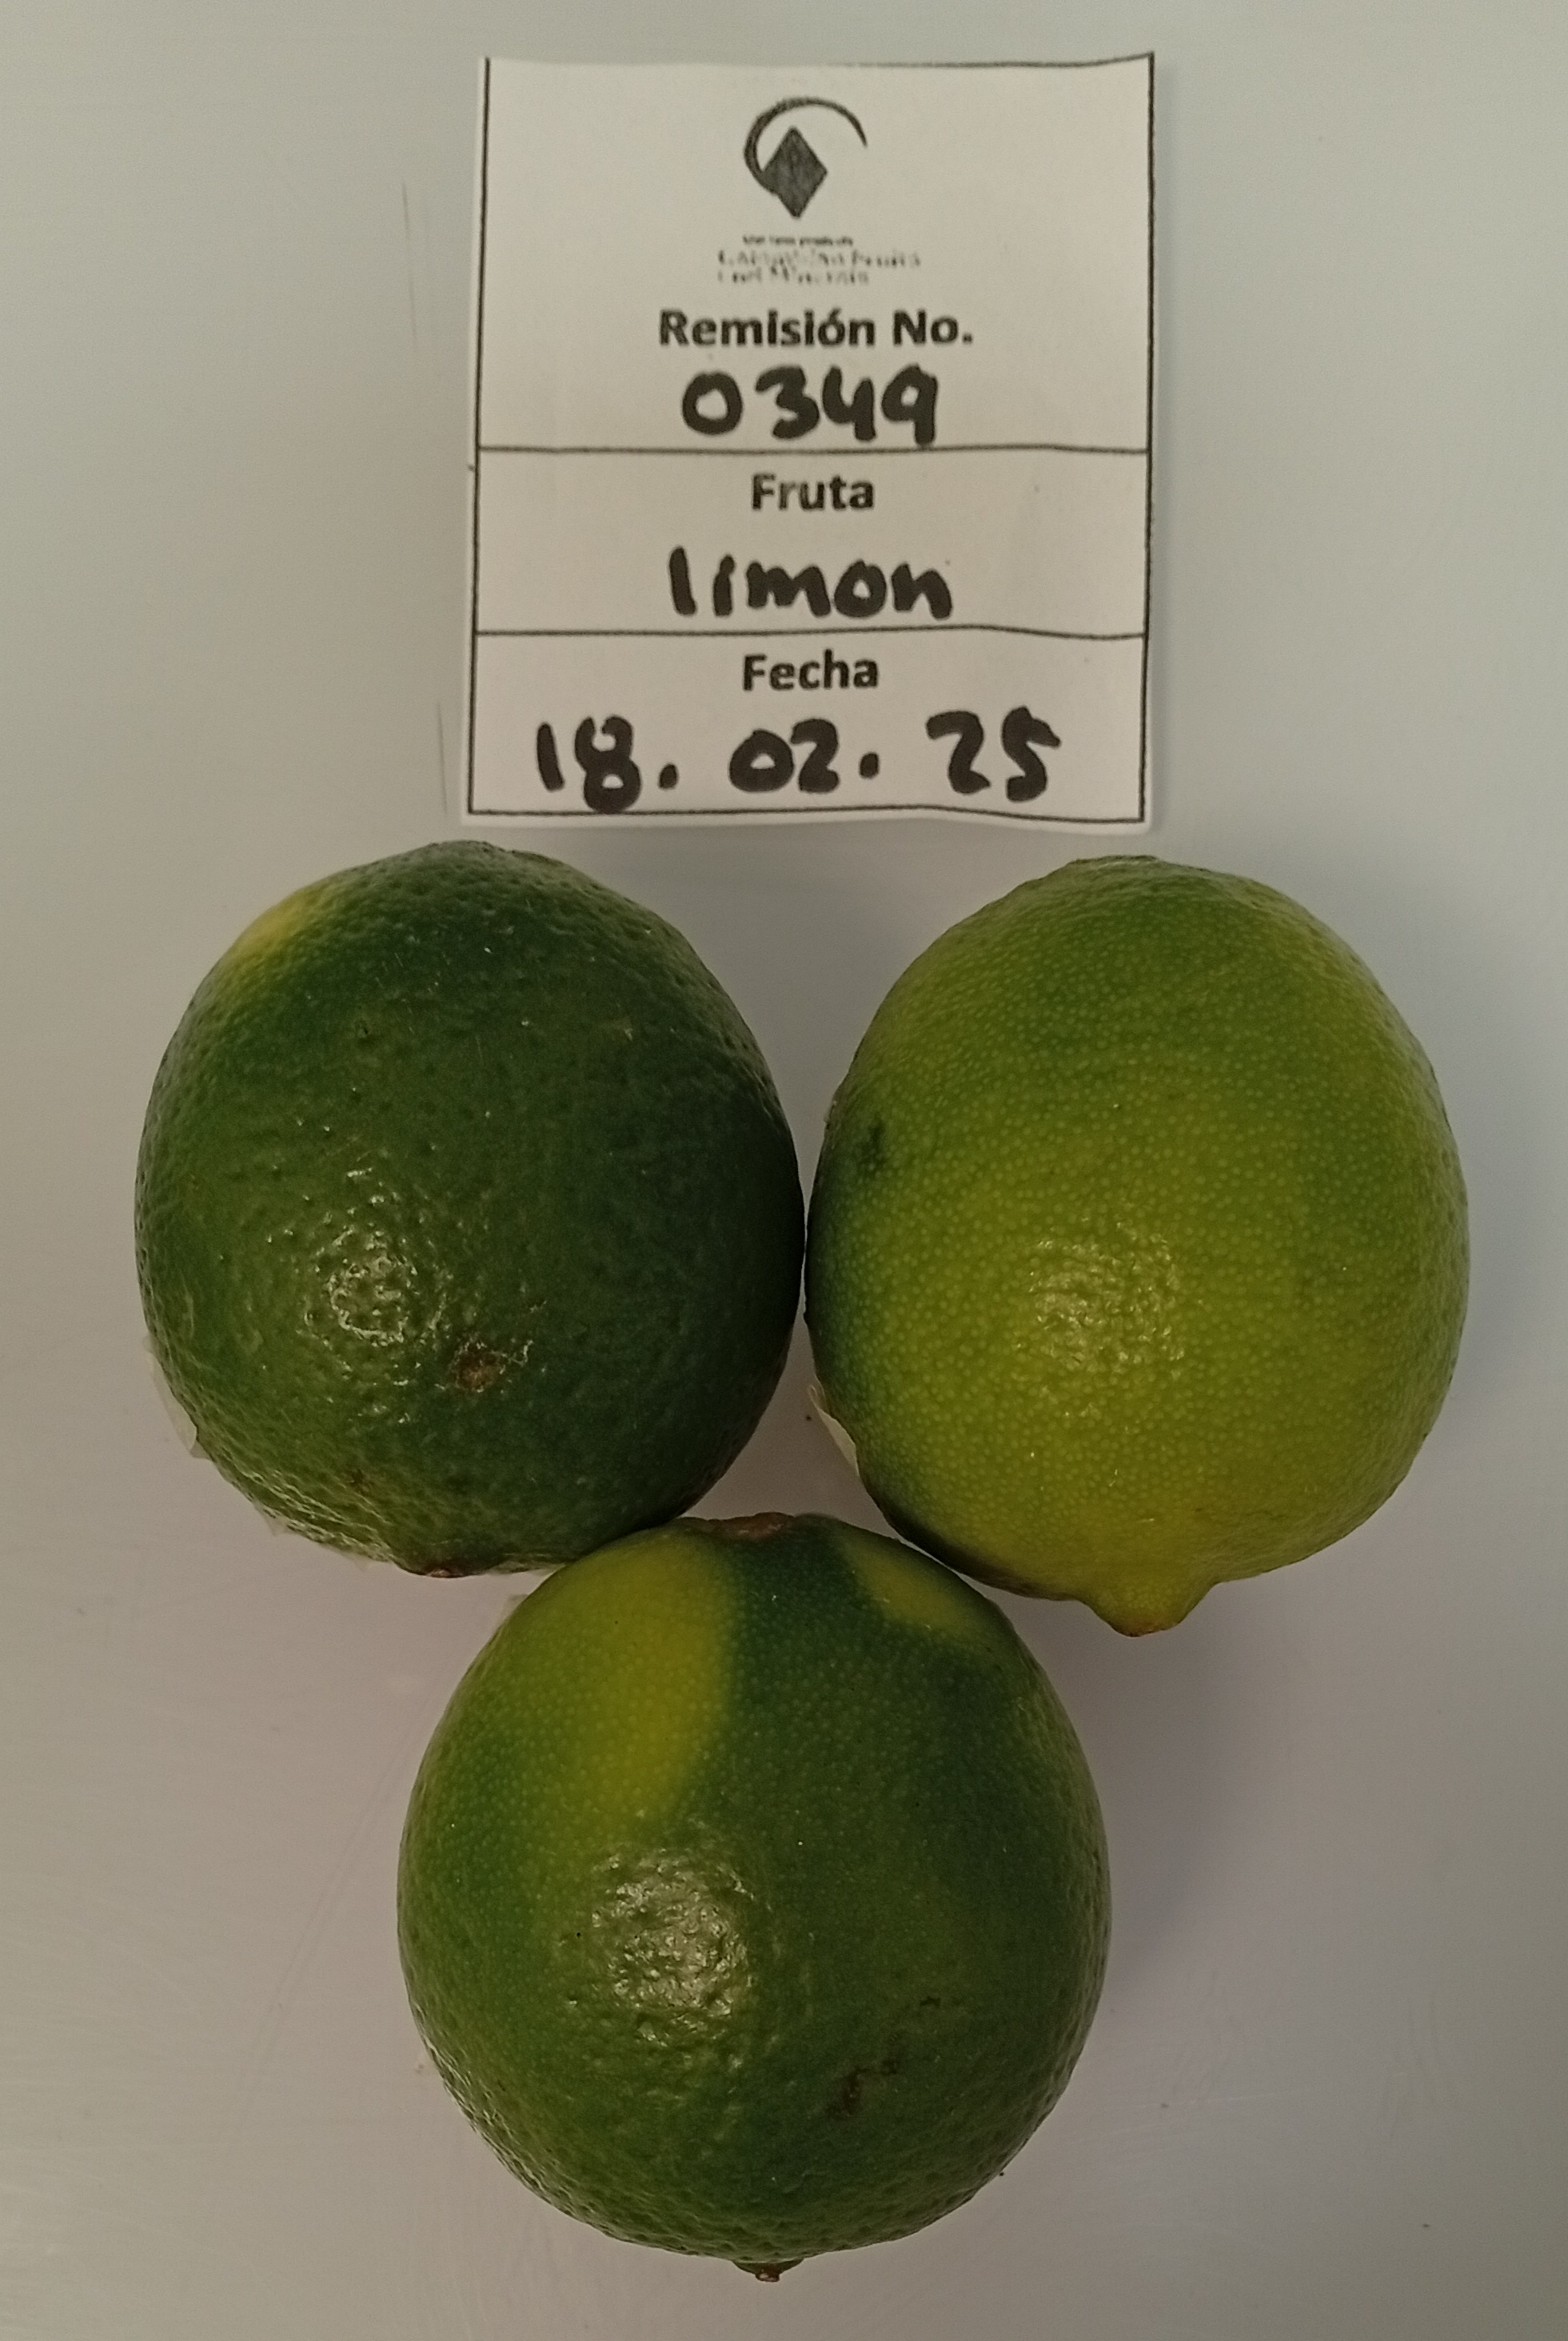 Remisión No.
0349
Fruta
limon
Fecha
18. 02. 25